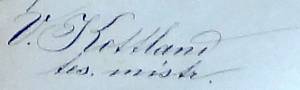 V. Kottland
tes. mistr.